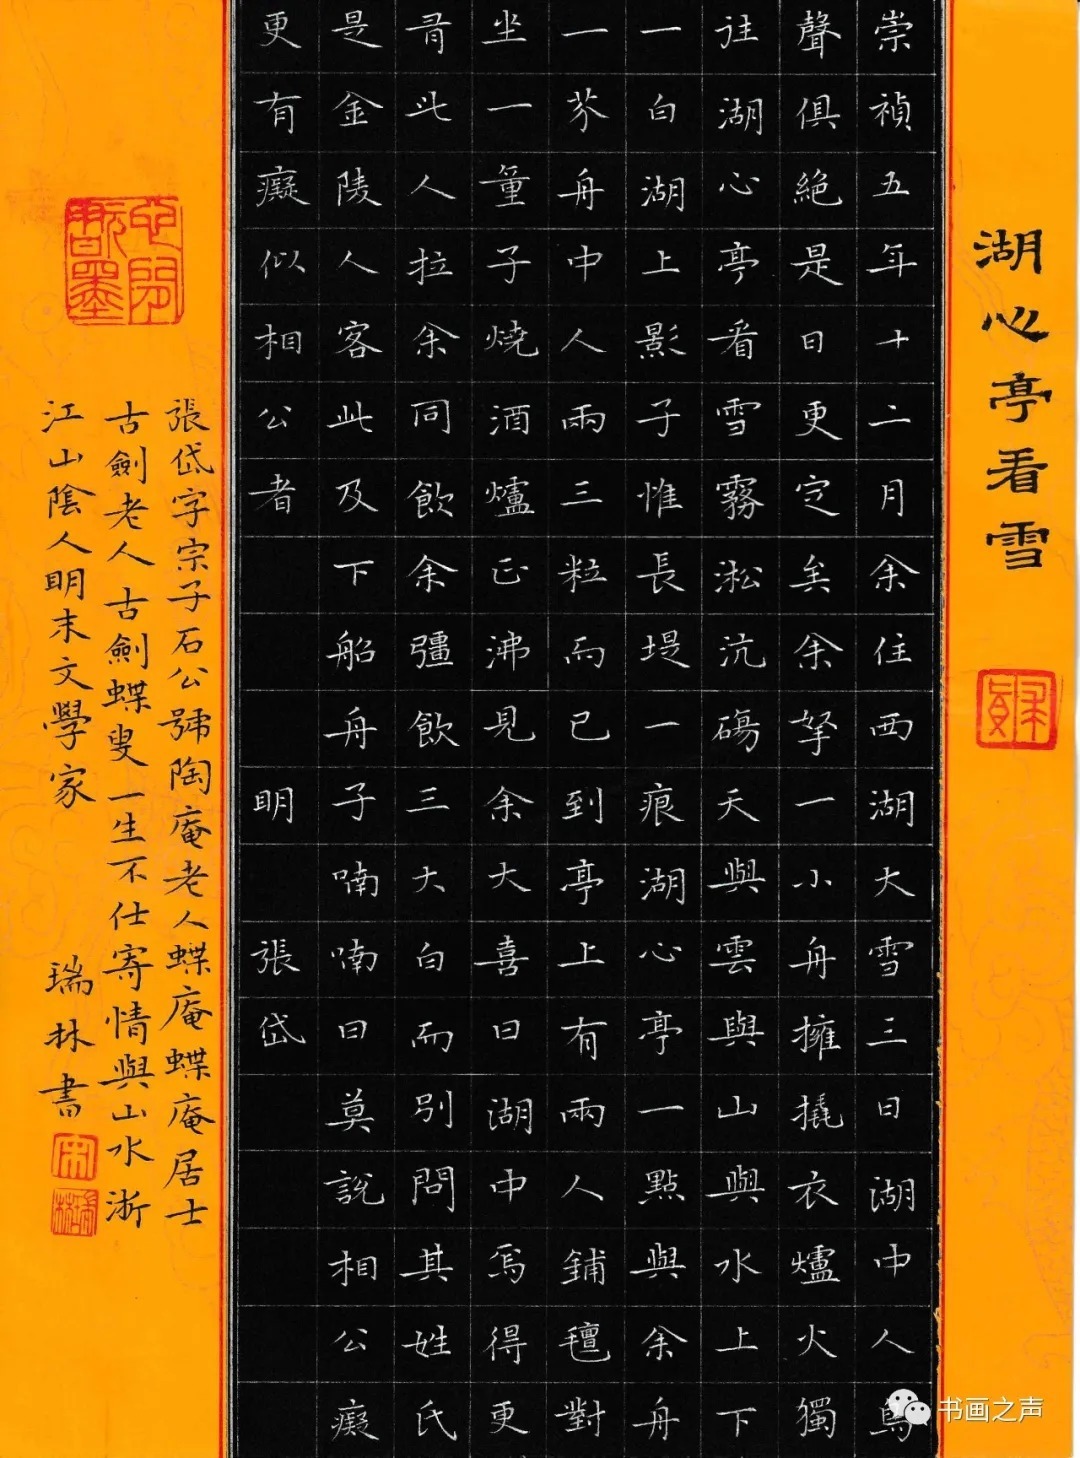 湖心亭看雪
崇禎五年十二月余住西湖大雪三日湖中人鳥
聲俱絕是日更定矣余拏一小舟擁撬衣爐火獨
往湖心亭看雪霧淞沆碭天與雲與山與水上下
一白湖上影子惟長堤一痕湖心亭一點與余舟
一芥舟中人兩三粒而已到亭上有兩人鋪氊對
坐一童子燒酒爐正沸見余大喜曰湖中焉得更
有此人拉余同飲余彊飲三大白而別問其姓氏
是金陵人客此及下船舟子喃喃曰莫說相公癡
更有癡似相公者 明 張岱
張岱字宗子石公號陶庵老人蝶庵蝶庵居士
古劍老人古劍蝶叟一生不仕寄情與山水浙
江山陰人明末文學家 瑞林書
书画之声